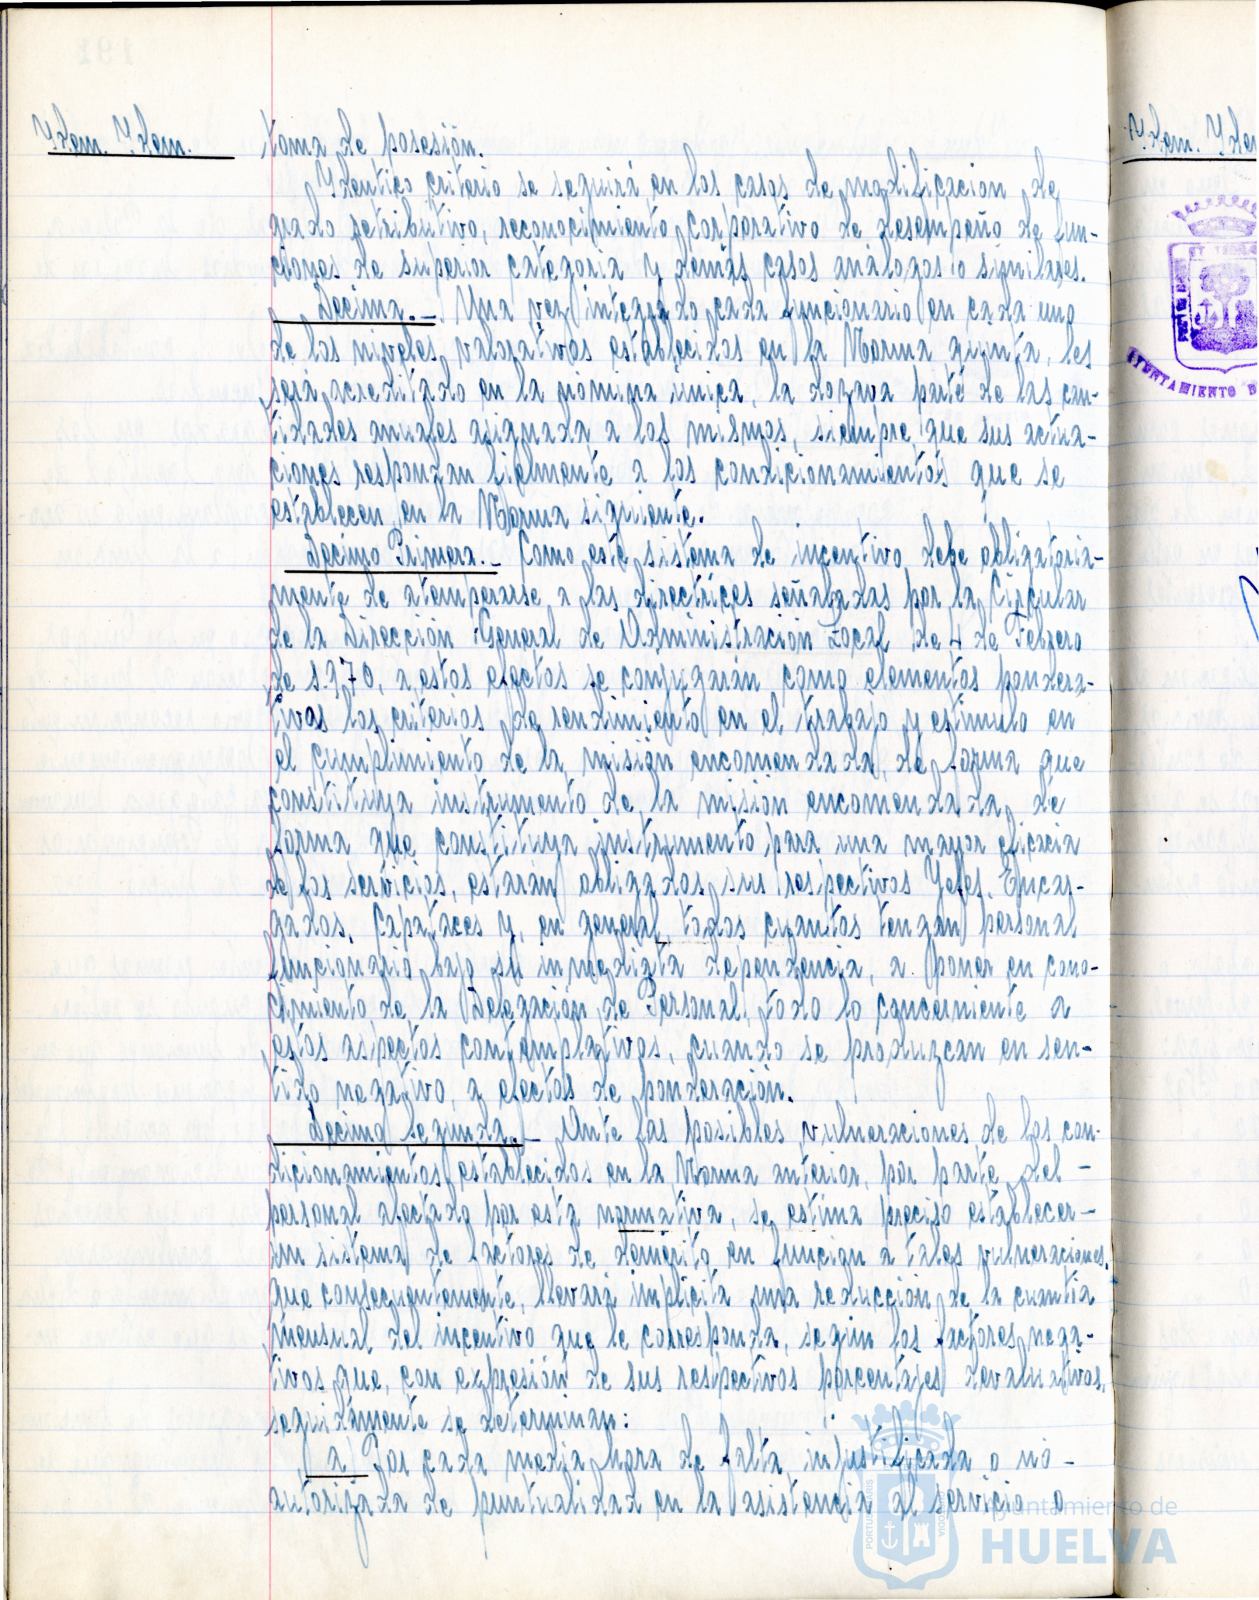 Ydem. Ydem.
toma de posesión.
Ydentico criterio se seguirá en los casos de modificacion de
grado retributivo, reconocimiento corporativo de desempeño de fun-
ciones de superior categoria y demás casos análogos o similares.
Décima.- Una vez integrado cada funcionario en cada uno
de los niveles valorativos establecidos en la Norma quinta, les
será acreditado en la nómina única, la dozava parte de las can-
tidades anuales asignada a los mismos, siempre que sus actua-
ciones respondan fielmente a los condicionamientos que se
establecen en la Norma siguiente.
Décimo Primera.- Como este sistema de incentivo debe obligatoria-
mente de atemperarse a las directrices señaladas por la Circular
de la Dirección General de Administración Local de 4 de Febrero
de 1.970, a estos efectos se conjugarán como elementos pondera-
tivos los criterios de rendimiento en el trabajo y estimulo en
el cumplimiento de la misión encomendada, de forma que
constituya instrumento de la misión encomendada, de
forma que constituya instrumento para una mayor eficacia
de los servicios, estarán obligados sus respectivos Jefes, Encar-
gados, Capataces y, en general, todos cuantos tengan personal
funcionario bajo su inmediata dependencia, a poner en cono-
cimiento de la Delegación de Personal, todo lo concerniente a
estos aspectos contemplativos, cuando se produzcan en sen-
tido negativo, a efectos de ponderación.
Décimo Segunda.- Ante las posibles vulneraciones de los con-
dicionamientos establecidos en la Norma anterior, por parte del -
personal afectado por esta normativa, se estima preciso establecer -
un sistema de factores de demérito en función a tales vulneraciones,
que consecuentemente, llevará implicita una reducción de la cuantia
mensual del incentivo que le corresponda, según los factores nega-
tivos que, con expresión de sus respectivos porcentajes devaluativos,
seguidamente se determinan:
a) Por cada media hora de falta injustificada o no -
autorizada de puntualidad en la asistencia al servicio o
Ayuntamiento de
HUELVA
Ydem. Yde
AYUNTAMIENTO